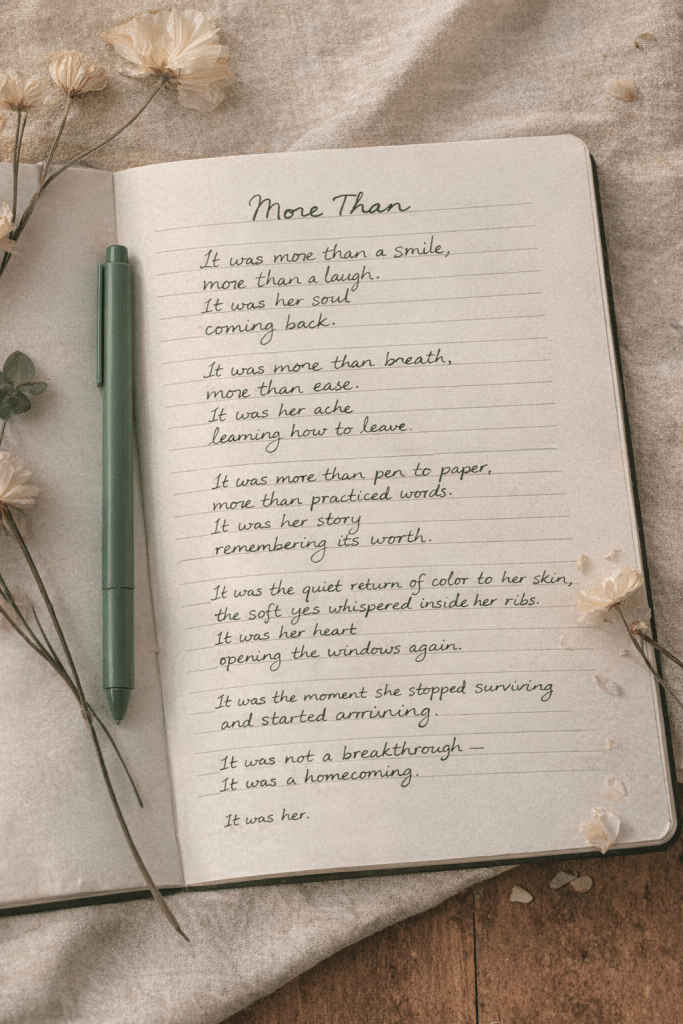 More Than
It was more than a smile,
more than a laugh.
It was her soul
coming back.
It was more than breath,
more than ease.
It was her ache
learning how to leave.
It was more than pen to paper,
more than practiced words.
It was her story
remembering its worth.
It was the quiet return of color to her skin,
the soft yes whispered inside her ribs.
It was her heart
opening the windows again.
It was the moment she stopped surviving
and started arrivining.
It was not a breakthrough —
It was a homecoming.
It was her.